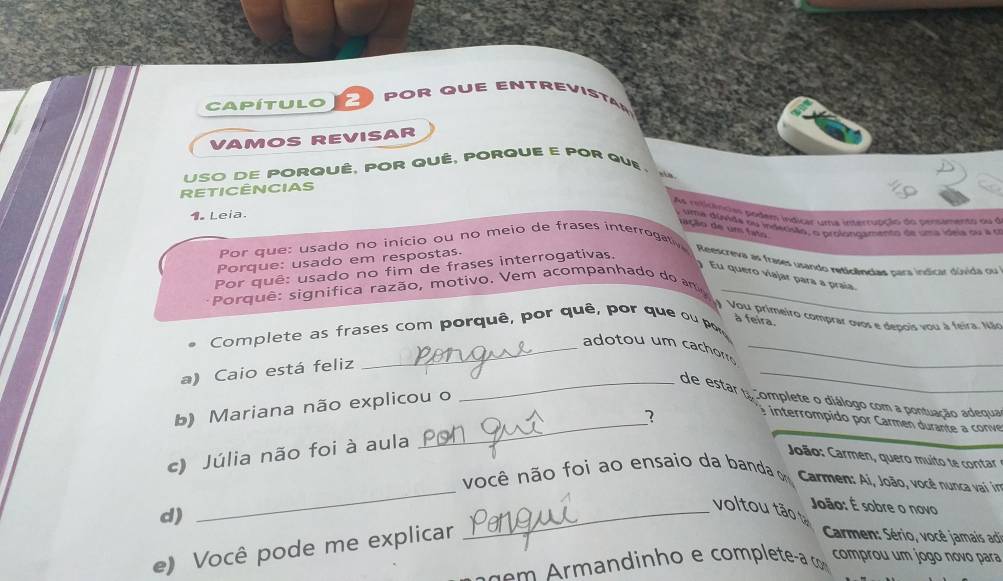 CAPÍTULO 2 POR QUE ENTREVISTAR
VAMOS REVISAR
USO DE PORQUÊ, POR QUÊ, PORQUE E POR QUE
RETICÊNCIAS
1. Leia.
Por que: usado no início ou no meio de frases interrogativ
Porque: usado em respostas.
Por quê: usado no fim de frases interrogativas.
Porquê: significa razão, motivo. Vem acompanhado do art
• Complete as frases com porquê, por quê, por que ou por
a) Caio está feliz porque adotou um cachorro
b) Mariana não explicou o de estar
c) Júlia não foi à aula por quê ?
d) você não foi ao ensaio da banda
e) Você pode me explicar Porquê voltou tão
Armandinho e complete-a
As reticências podem indicar uma interrupção do pensamento ou d
uma dúvida ou indecisão, o prolongamento de uma ideia ou a
de um fato
Reescreva as frases usando reticências para indicar dúvida ou
Eu quero viajar para a praia.
Vou primeiro comprar ovos e depois vou à feira. Não
à feira.
Complete o diálogo com a pontuação adequa
é interrompido por Carmen durante a conve
João: Carmen, quero muito te contar
Carmen: Ai, João, você nunca vai
João: É sobre o novo
Carmen: Sério, você jamais adi
comprou um jogo novo para